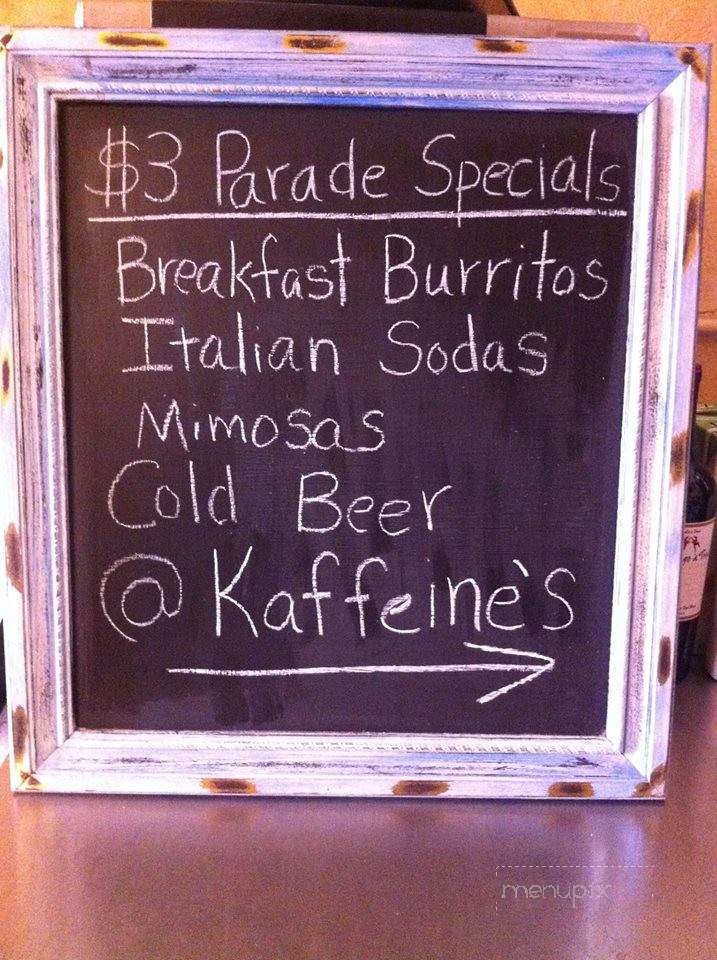 $3 Parade Specials
Breakfast Burritos
Italian Sodas
Mimosas
Cold Beer
@ Kaffeine's
menupix